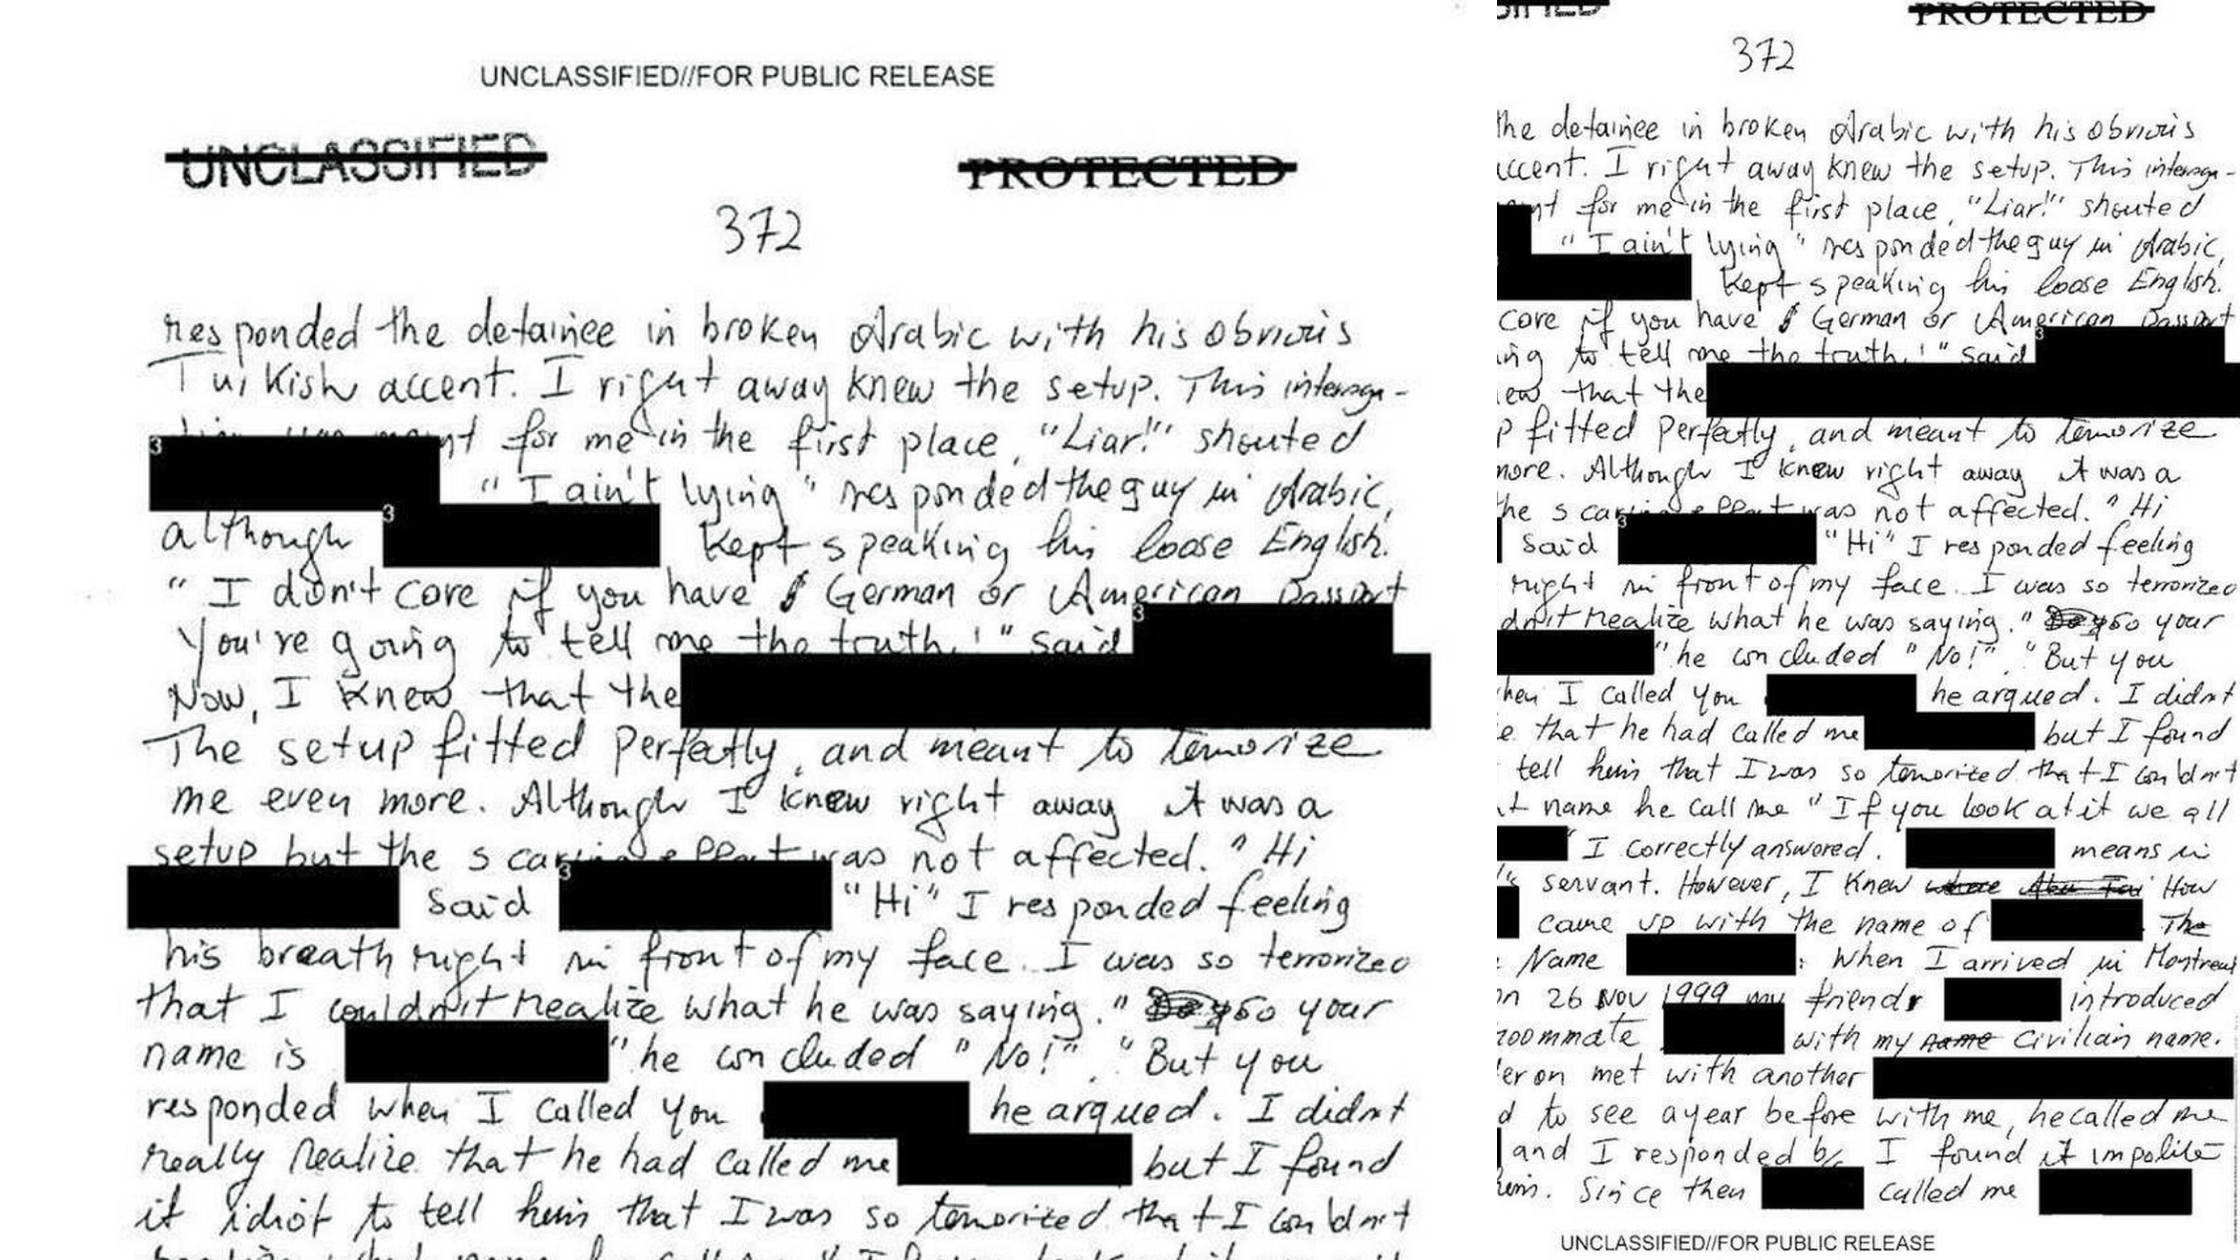 UNCLASSIFIED//FOR PUBLIC RELEASE
UNCLASSIFIED PROTECTED
372
responded the detainee in broken Arabic with his obvious
Turkish accent. I right away knew the setup. This interroga-
for me in the first place, "Liar!" shouted
"I ain't lying" responded the guy in Arabic,
although kept speaking his loose English.
"I don't care if you have German or American passport
You're going to tell me the truth!" said
Now, I knew that the
The setup fitted perfectly, and meant to terrorize
me even more. Although I knew right away it was a
setup but the scaring effect was not affected. "Hi
said "Hi" I responded feeling
his breath right in front of my face. I was so terrorized
that I couldn't realize what he was saying." so your
name is " he concluded "No!". "But you
responded when I called you he argued. I didn't
really realize that he had called me but I found
it idiot to tell him that I was so terrorized that I couldn't
PROTECTED
372
the detainee in broken Arabic with his obvious
accent. I right away knew the setup. This interroga-
for me in the first place, "Liar!" shouted
"I ain't lying" responded the guy in Arabic,
kept speaking his loose English.
care if you have German or American passport
to tell me the truth!" said
that the
fitted perfectly, and meant to terrorize
more. Although I knew right away it was a
the scaring effect was not affected. "Hi
said "Hi" I responded feeling
right in front of my face. I was so terrorized
realize what he was saying." so your
" he concluded "No!". "But you
when I called you he argued. I didn't
that he had called me but I found
tell him that I was so terrorized that I couldn't
name he call me "If you look at it we all
" I correctly answered. means in
servant. However, I knew How
came up with the name of The
Name : When I arrived in Montreal
26 Nov 1999 my friend introduced
roommate with my name civilian name.
met with another
to see a year before with me, he called me
and I responded b/c I found it impolite
him. Since then called me
UNCLASSIFIED//FOR PUBLIC RELEASE